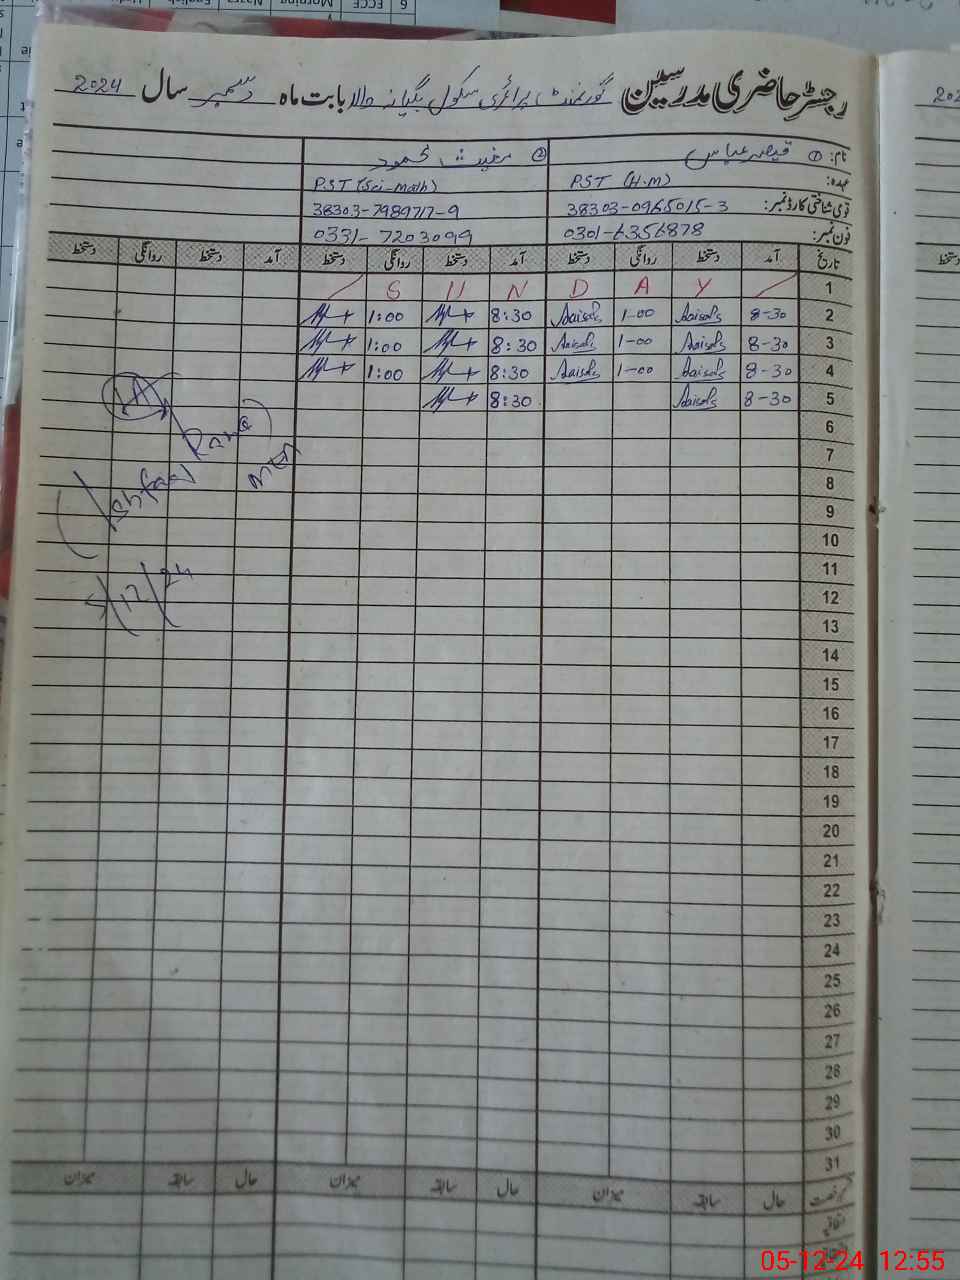 رجسٹر حاضری مدرسین گورنمنٹ پرائمری سکول بگیانہ والا بابت ماہ دسمبر سال 2024
نام: ① قیصر عباس ② مغیث محمود
عہدہ: PST (H.M) PST (Sci-Math)
قومی شناختی کارڈ نمبر: 38303-0965015-3 38303-7989717-9
فون نمبر: 0301-6356878 0331-7203099
تاریخ آمد دستخط روانگی دستخط آمد دستخط روانگی دستخط آمد دستخط روانگی دستخط
1 S U N D A Y
2 8-30 1-00 8:30 1:00
3 8-30 1-00 8:30 1:00
4 8-30 1-00 8:30 1:00
5 8-30 8:30
6
7
8
9
10
11
12
13
14
15
16
17
18
19
20
21
22
23
24
25
26
27
28
29
30
31
حال سابقہ میزان حال سابقہ میزان حال سابقہ میزان
اتفاقیہ
(Ishfaq Rana)
5/12/24
05-12-24 12:55